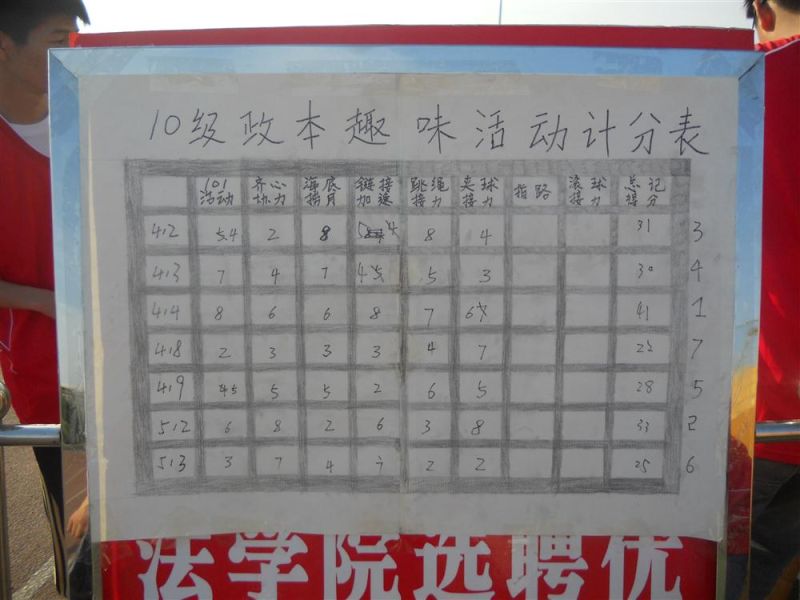 10级政本趣味活动计分表
101活动 齐心协力 海底捞月 链接加速 跳绳接力 夹球接力 指路 滚球接力 总记得分
412 5.4 2 8 4 8 4 31 3
413 7 4 7 4.5 5 3 30 4
414 8 6 6 8 7 6 41 1
418 2 3 3 3 4 7 22 7
419 4.5 5 5 2 6 5 28 5
512 6 8 2 6 3 8 33 2
513 3 7 4 7 2 2 25 6
法学院选聘优